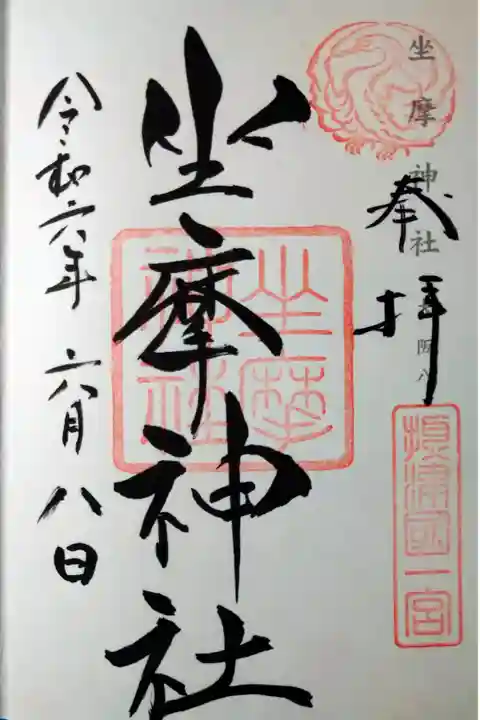 坐摩神社
奉拝
摂津国一宮
坐摩神社
坐摩神社
令和六年 六月 八日